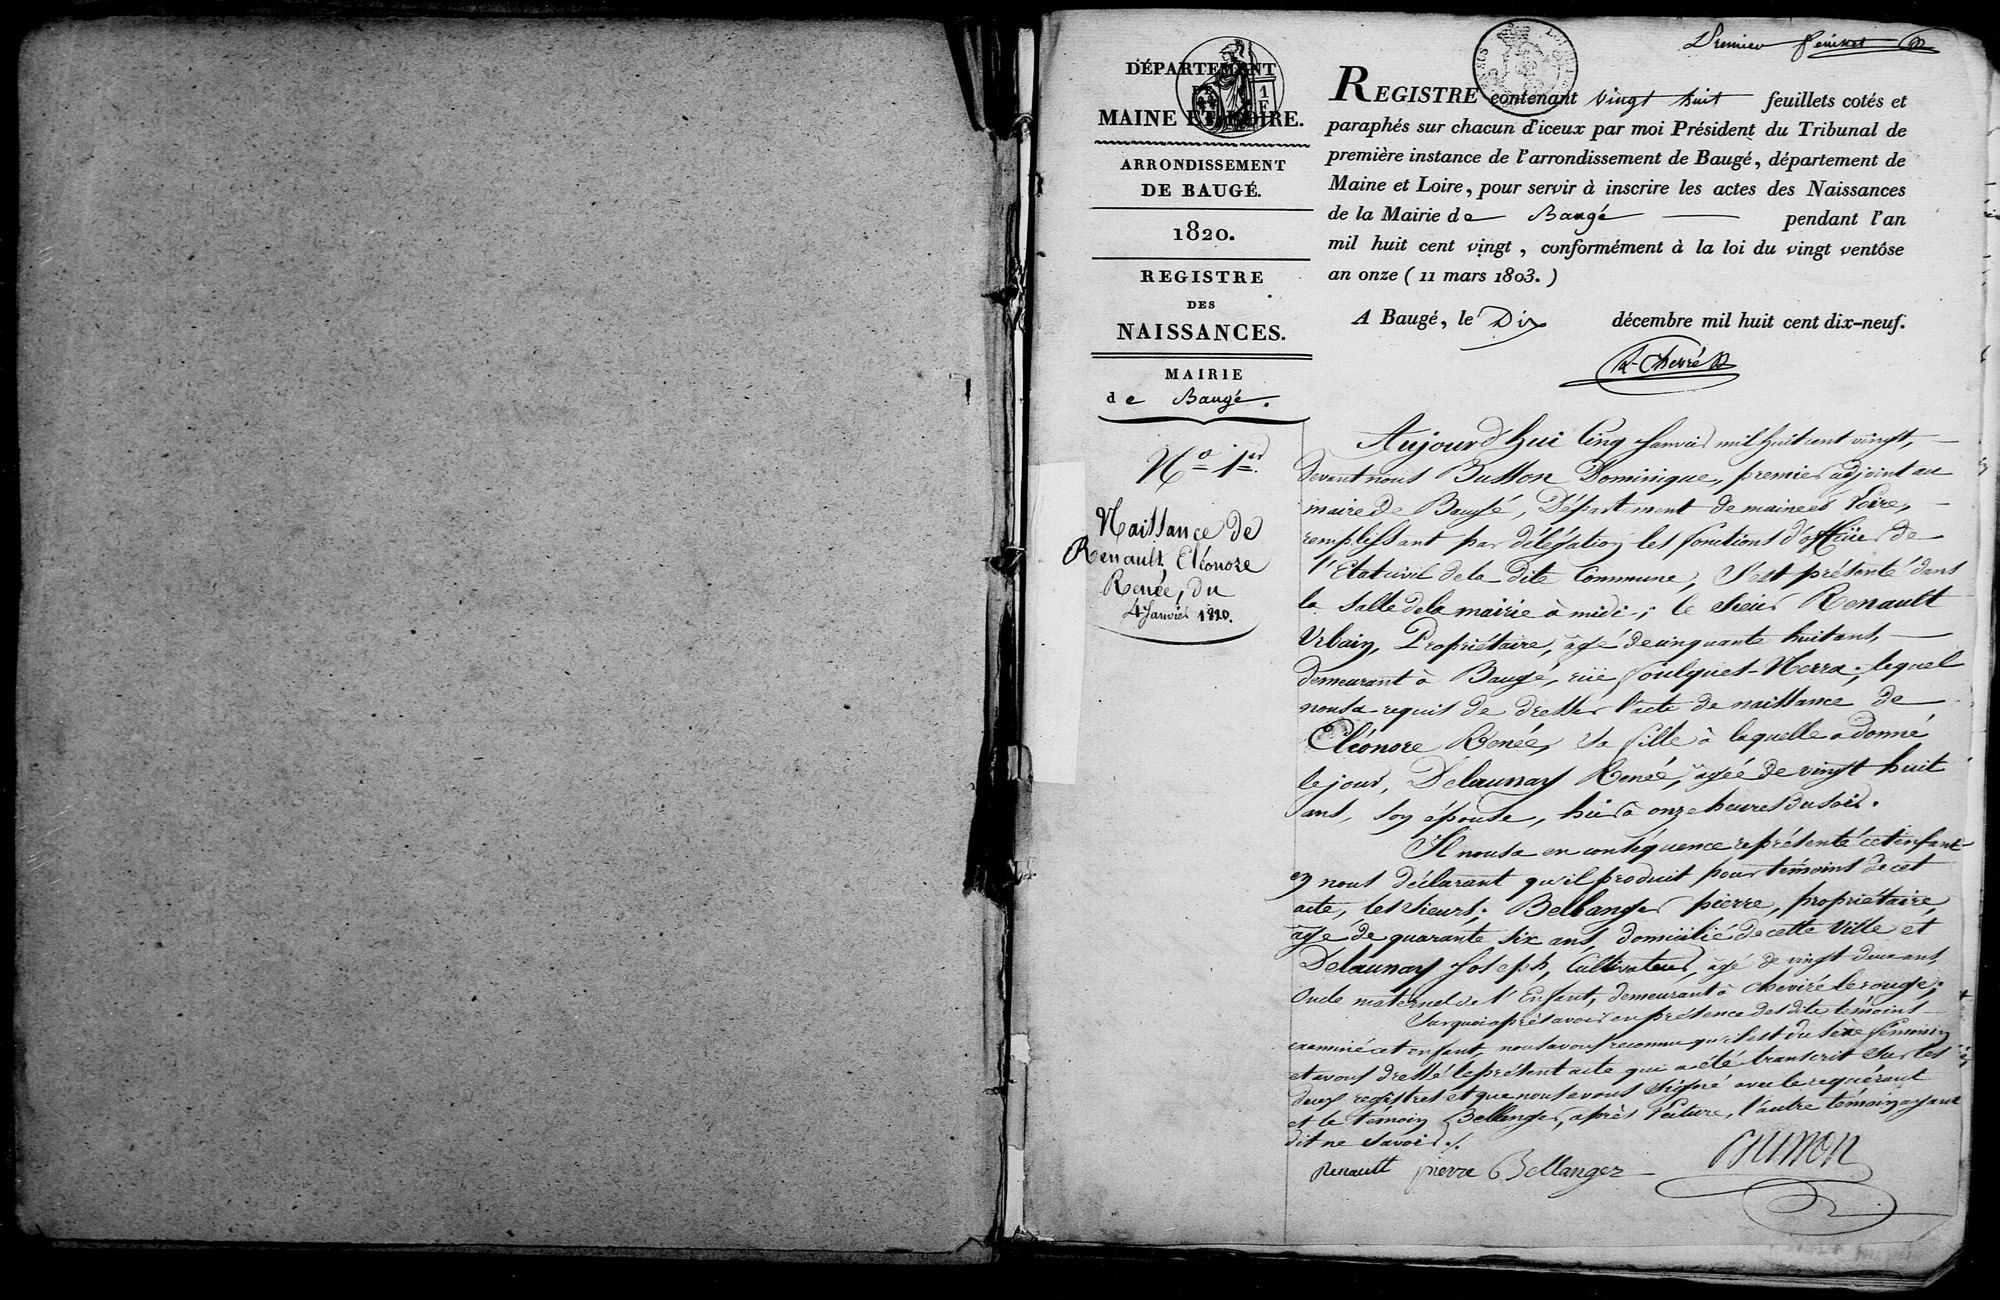 Premier feuillet
DÉPARTEMENT
DE
MAINE ET LOIRE.
ARRONDISSEMENT
DE BAUGÉ.
1820.
REGISTRE
DES
NAISSANCES.
MAIRIE
de Baugé.
REGISTRE contenant vingt huit feuillets cotés et
paraphés sur chacun d'iceux par moi Président du Tribunal de
première instance de l'arrondissement de Baugé, département de
Maine et Loire, pour servir à inscrire les actes des Naissances
de la Mairie de Baugé pendant l'an
mil huit cent vingt, conformément à la loi du vingt ventôse
an onze (11 mars 1803.)
A Baugé, le Dix décembre mil huit cent dix-neuf.
Chevré
N.o 1.er
Naissance de
Renault Eléonore
Renée, du
4 Janvier 1820.
Aujourd'hui Cinq Janvier mil huit cent vingt,
devant nous Busson Dominique, premier adjoint au
maire de Baugé, Département de maine et Loire,
remplissant par délégation les fonctions d'officier de
l'Etat civil de la dite Commune, s'est présenté dans
la salle de la mairie à midi; le sieur Renault
Urbain, Propriétaire, âgé de cinquante huit ans,
demeurant à Baugé, rüe foulques-Nerra; lequel
nous a requis de dresser l'acte de naissance de
Eléonore Renée, sa fille à laquelle a donné
le jour, Delaunay Renée, âgée de vingt huit
ans, son épouse, hier à onze heures du soir.
Il nous a en conséquence représenté cet enfant
en nous déclarant qu'il produit pour témoins de cet
acte, les sieurs; Bellanger pierre, propriétaire,
âgé de quarante six ans, domicilié de cette ville et
Delaunay Joseph, Cultivateur, âgé de vingt deux ans,
Oncle maternel de l'Enfant, demeurant à Cheviré le rouge;
Sur quoi après avoir en présence des dits témoins
examiné cet enfant, nous avons reconnu qu'il est du sexe féminin
et avons dressé le présent acte qui a été transcrit sur les
deux registres et que nous avons signé avec le requérant
et le témoin Bellanger, après lecture, l'autre témoin ayant
dit ne savoir./.
Renault pierre Bellanger
Busson